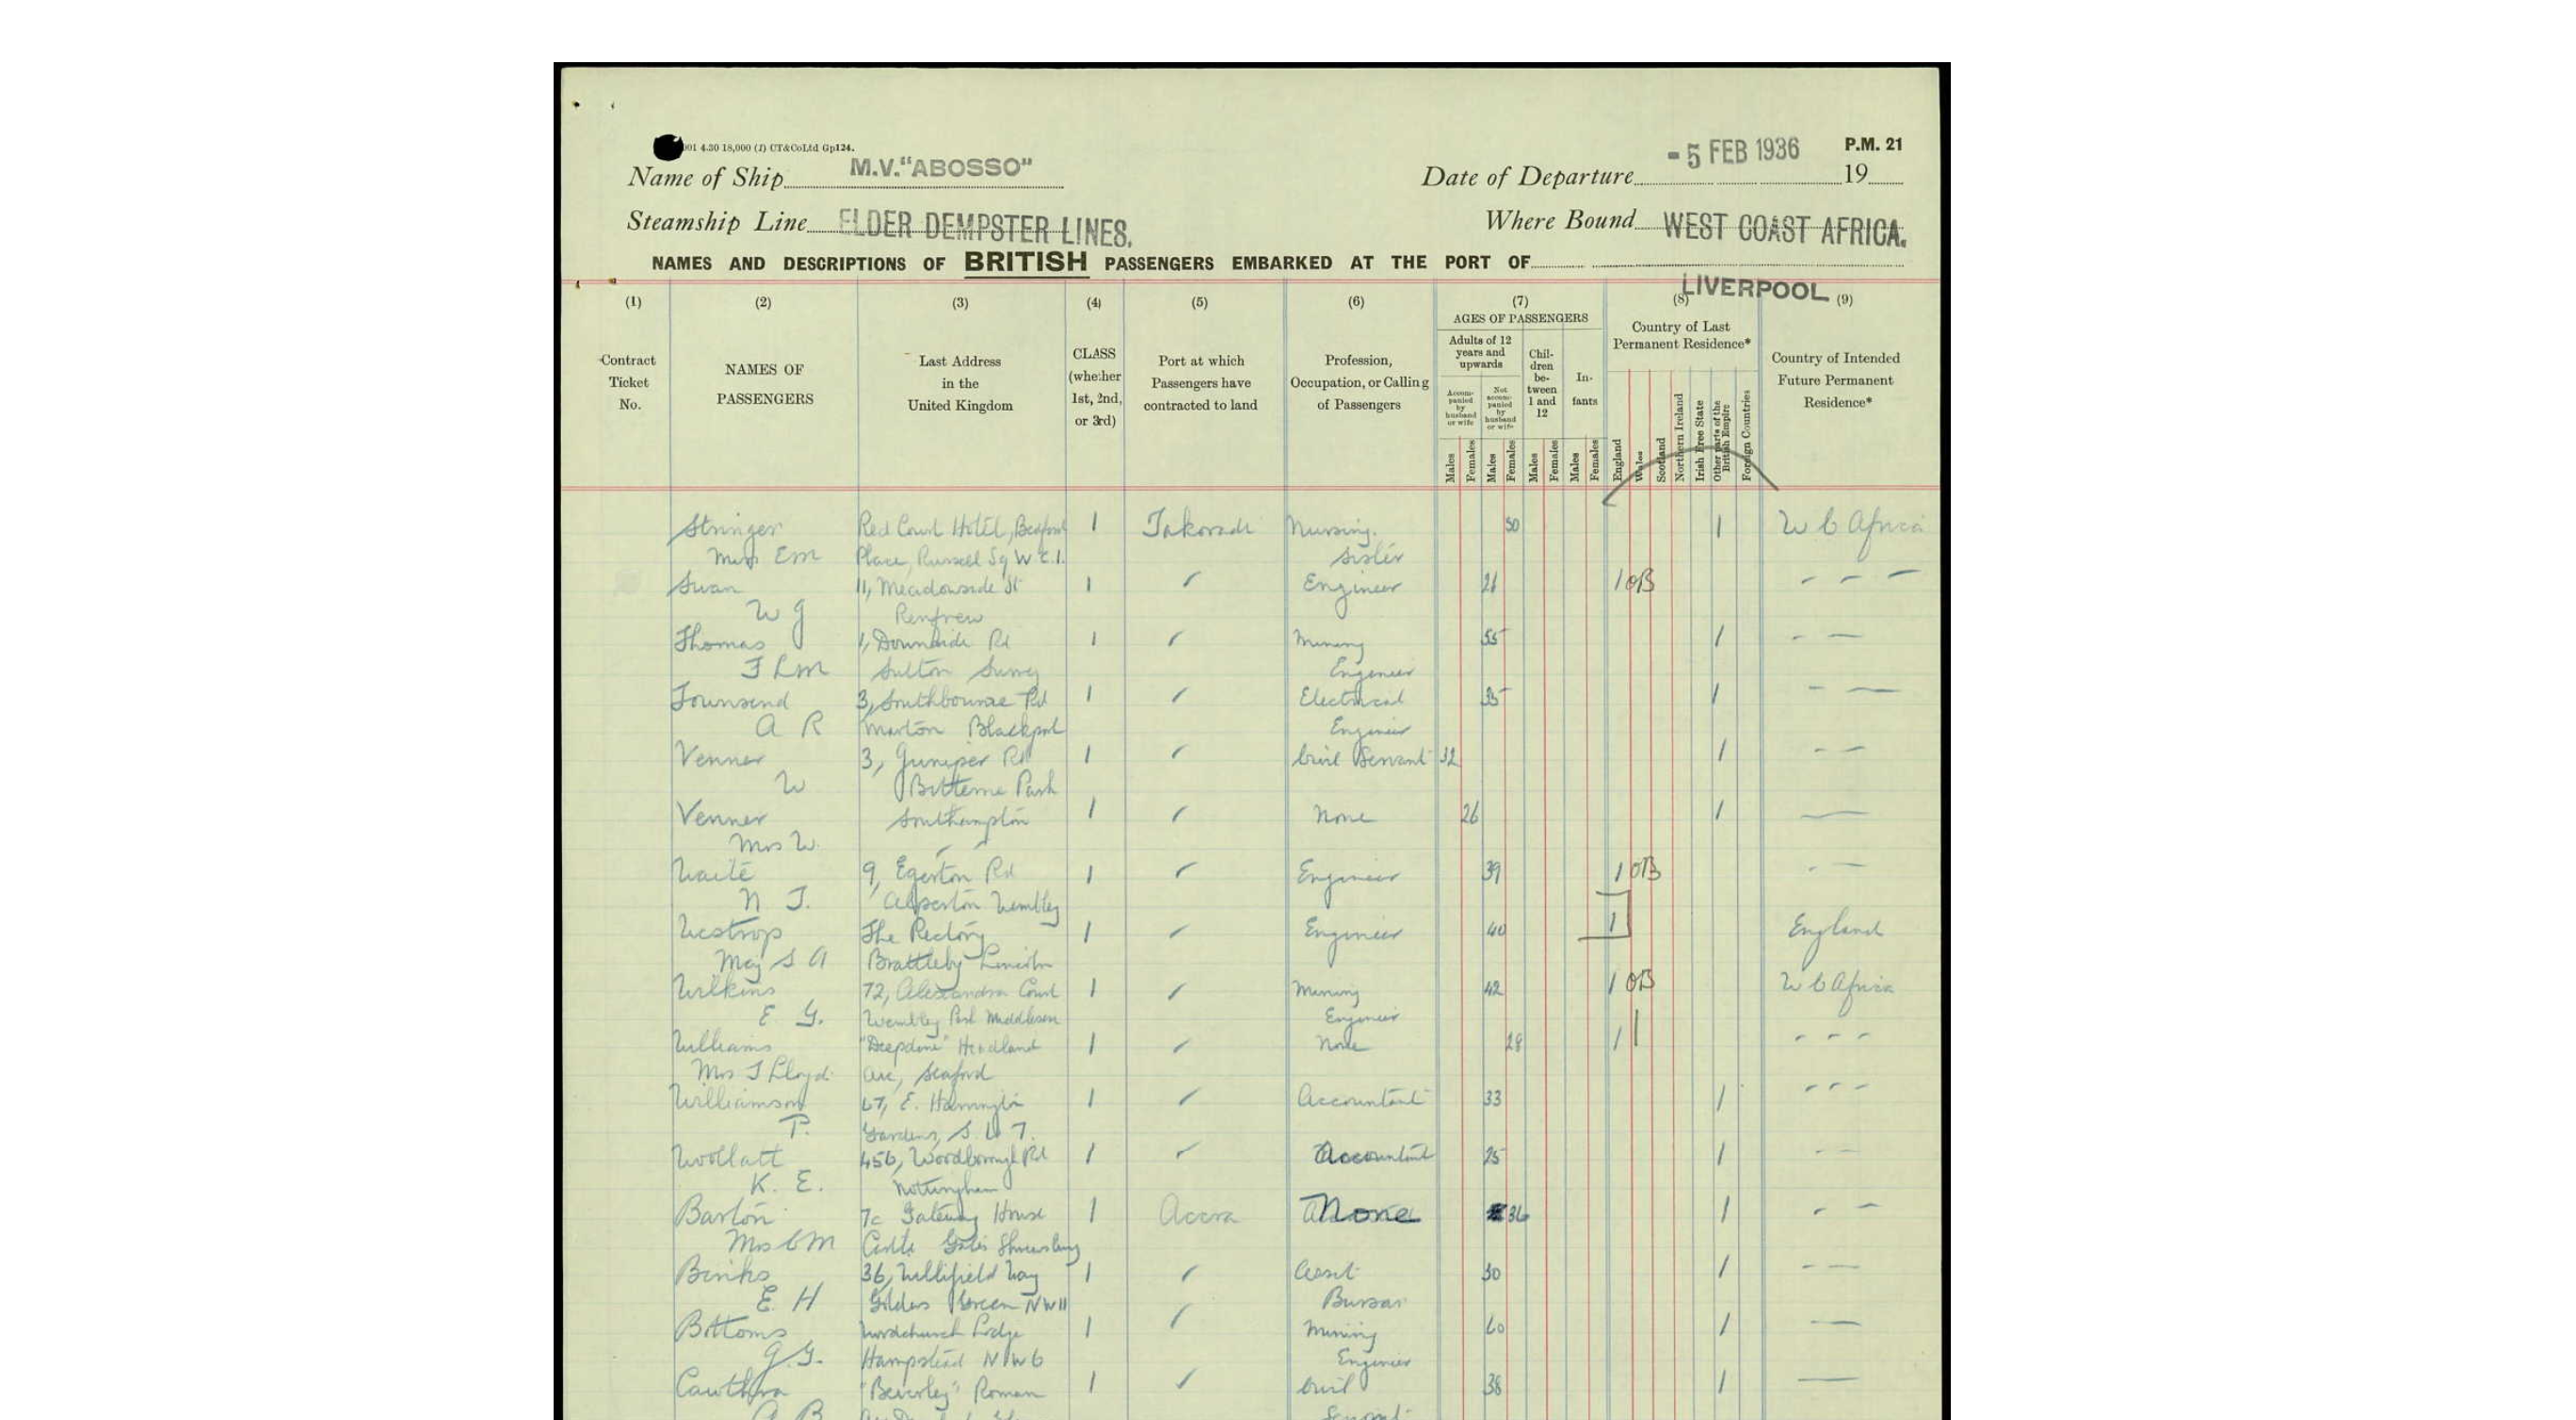 001 4.30 18,000 (J) CT&CoLtd Gp124.
P.M. 21
Name of Ship M.V. "ABOSSO"
Date of Departure - 5 FEB 1936 19
Steamship Line ELDER DEMPSTER LINES.
Where Bound WEST COAST AFRICA.
NAMES AND DESCRIPTIONS OF BRITISH PASSENGERS EMBARKED AT THE PORT OF
LIVERPOOL
(1) (2) (3) (4) (5) (6) (7) (8) (9)
Contract Ticket No.
NAMES OF PASSENGERS
Last Address in the United Kingdom
CLASS (whether 1st, 2nd, or 3rd)
Port at which Passengers have contracted to land
Profession, Occupation, or Calling of Passengers
AGES OF PASSENGERS
Adults of 12 years and upwards
Accompanied by husband or wife
Not accompanied by husband or wife
Children between 1 and 12
Infants
Males Females Males Females Males Females Males Females
Country of Last Permanent Residence*
England Wales Scotland Northern Ireland Irish Free State Other parts of the British Empire Foreign Countries
Country of Intended Future Permanent Residence*
Stringer Red Court Hotel, Bedford 1 Takoradi Nursing 50 1 W C Africa
Miss E M Place, Russell Sq W.C.1. Sister
Swan 11, Meadowside St 1 Engineer 21 1 OB
W G Renfrew
Thomas 1, Downside Rd 1 Mining 55 1
F L M Sutton Surrey Engineer
Townsend 3, Southbourne Rd 1 Electrical 35 1
A R Marton Blackpool Engineer
Venner 3, Juniper Rd 1 Civil Servant 32 1
W Bitterne Park
Venner Southampton 1 None 26 1
Mrs W.
Waite 9, Egerton Rd 1 Engineer 39 1 OB
N. J. Alperton Wembley
Westrop The Rectory 1 Engineer 40 1 England
Maj S A Brattleby Lincoln
Wilkins 72, Alexandra Court 1 Mining 42 1 OB W C Africa
E. G. Wembley Park Middlesex Engineer
Williams "Deepdene" Headland 1 None 28 1
Mrs J Lloyd Ave, Seaford
Williamson 67, E. Harrington 1 Accountant 33 1
T. Gardens, S. W 7.
Wollatt 456, Woodborough Rd 1 Accountant 25 1
K. E. Nottingham
Barton 7c Gateway House 1 Accra None 36 1
Mrs C M Castle Gates Shrewsbury
Binks 36, Willifield Way 1 Asst 30 1
E. H Golders Green NW11 Bursar
Bottoms Woodchurch Lodge 1 Mining 60 1
G. G. Hampstead N W 6 Engineer
Cawthra "Beverley" Roman 1 Civil 38 1
A B Servant